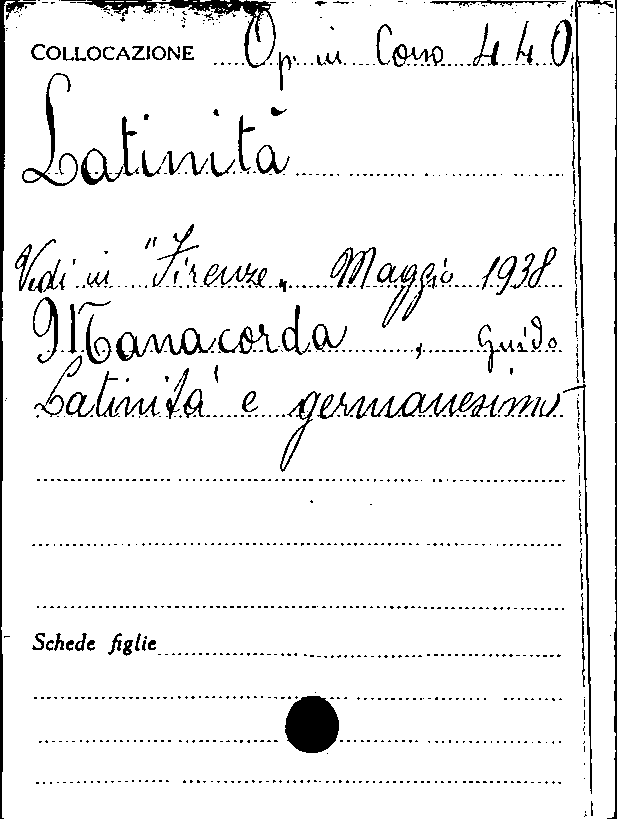 COLLOCAZIONE Op. in Corso 440
Latinità
Vedi in "Firenze" Maggio 1938
Manacorda, Guido
Latinità e germanesimo
Schede figlie